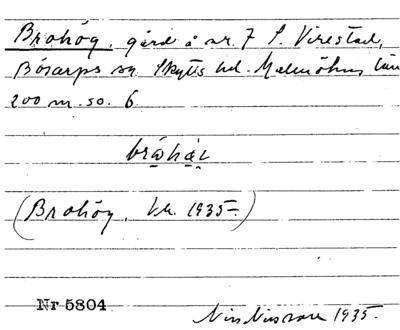 Brohög, gård å nr. 7 S. Virestad,
Bösarps sn Skytts hd. Malmöhus län
200 m. so. 6
(Brohög, 1935.)
Nr 5804
Nils Nilsson 1935.